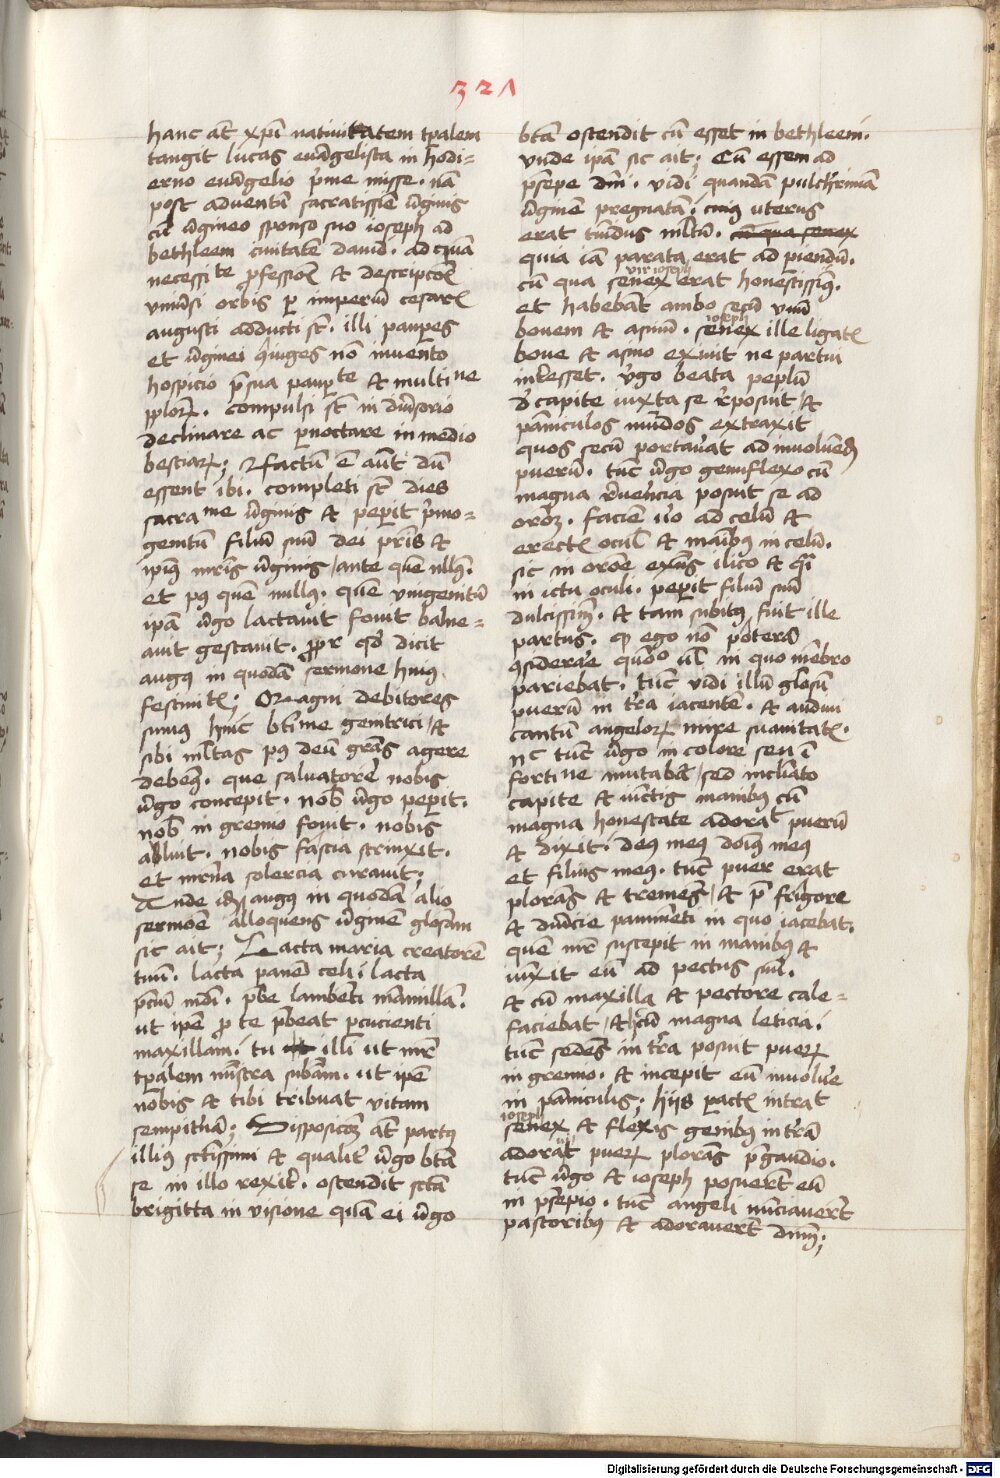 321
hanc at̄ xp̄i nativitatem tp̄alem
tangit lucas ewāgelista in hodi=
erno ewāgelio p̄me misse. nā
post adventū sacratissiē v̄ginis
cū v̄gineo sponso suo ioseph ad
bethleem civitatē david. ad quā
necessite professiōi et descriptōi
vniūsi orbis per imperiū cesaris
augusti adducti st̄. illi paupes
et v̄ginei ɔiuges nō invento
hospicio p̄ sua paupte et multine
pplor̄. compulsi st̄ in divsorio
declinare ac pnoctare in medio
bestiar̄; factū ē aūt dū
essent ibi. completi st̄ dies
sacrame v̄ginis et pepit p̄mo=
genitū filiū suū dei pr̄is et
ipiꝰ mr̄is v̄ginis / ante quē nllꝰ.
et pꝰ quē nullꝰ. quē vnigenitū
ipā v̄go lactavit fovit balne=
avit gestavit. ppr̄ qd̄ dicit
augꝰ in quodā sermone huiꝰ
festivitꝭ; Magni debitores
sumꝰ huic bt̄ime genitrici / et
sibi ml̄tas pꝰ deū grās agere
debemꝰ. que salvatorē nobis
v̄go concepit. nob̄ v̄go pepit.
nob̄ in gremio fovit. nobis
abluit. nobis fascia strinxit.
et mr̄na solercia curavit;
Unde idē augꝰ in quodā alio
sermoē alloquens v̄ginē glōsam
sic ait; Lacta maria creatorē
tuū. lacta panē celi; lacta
p̄ciū mdī. p̄be lambēti māmillā.
ut ipē p te p̄beat pcucienti
maxillam; tu illi ut mr̄
tp̄alem mīstra subām. ut ipē
nobis et tibi tribuat vitam
sempitnā; Disposicōē at̄ partꝰ
illius sctissimi et qualit̄ v̄go bt̄a
se in illo rexit. ostendit sctā
brigitta in visione quā ei v̄go
bt̄a ostendit cū esset in bethleem.
vnde ipā sic ait; Cū essem ad
p̄sepe dn̄i. vidi quandā pulcherimā
v̄ginē pregnatā; cuiꝰ uterus
erat tmidus ml̄tū. cū qua senex
quia iā parata erat ad piendū.
vir ioseph
cū qua senex erat honestissimꝰ.
et habebāt ambo secū vnū
ioseph
bovem et asinū. senex ille ligatꝭ
bove et asino exivit ne partui
intesset. v̄go beata peplū
d̄ capite iuxta se deposuit et
pāniculos mūdos extraxit
quos secū portavat ad involvēdū
puerū. tūc v̄go genuflexo cū
magna revencia posuit se ad
orōē. faciē vo ad celū et
erectꝭ ocul et maībꝰ in celū.
sic in orōe exn̄s ilico et quasi
in ictu oculi. pepit filiū suū
dulcissimū. et tam subitꝰ fuit ille
partus. qꝫ ego nō poterā
ɔsiderare quōo ul in quo mēbro
pariebat. tūc vidi illū glōsū
puerū in tra iacentē. et audivi
cantū angelorꝭ mire suavitatꝭ.
nc tūc v̄go in colore seu ī
fortine mutabat / sed inclinato
capite et iūctis manibꝰ cū
magna honestate adorat puerū
et dixit; deꝰ meꝰ domꝰ meꝰ
et filius meꝰ. tūc puer erat
plorās et tremēs / et p̄ frigore
et duricie pavimēti in quo iacebat.
quē mr̄ suscepit in manibꝰ et
iūxit eū ad pectus suū.
et cū maxilla et pectore cale=
faciebat / et cū magna leticia;
tūc sedēs in tra posuit puerꝭ
in gremio. et incepit eū involve
in pāniculis; hijs pactꝭ intrat
ioseph
senex et flexis genibꝰ in trā
adorat puerꝭ plorās p̄ gaudio.
tūc v̄go et ioseph posuert eū
in p̄sepio. tūc angeli nūciavert
pastoribꝰ et adoravert dnm̄;
Digitalisierung gefördert durch die Deutsche Forschungsgemeinschaft - DFG